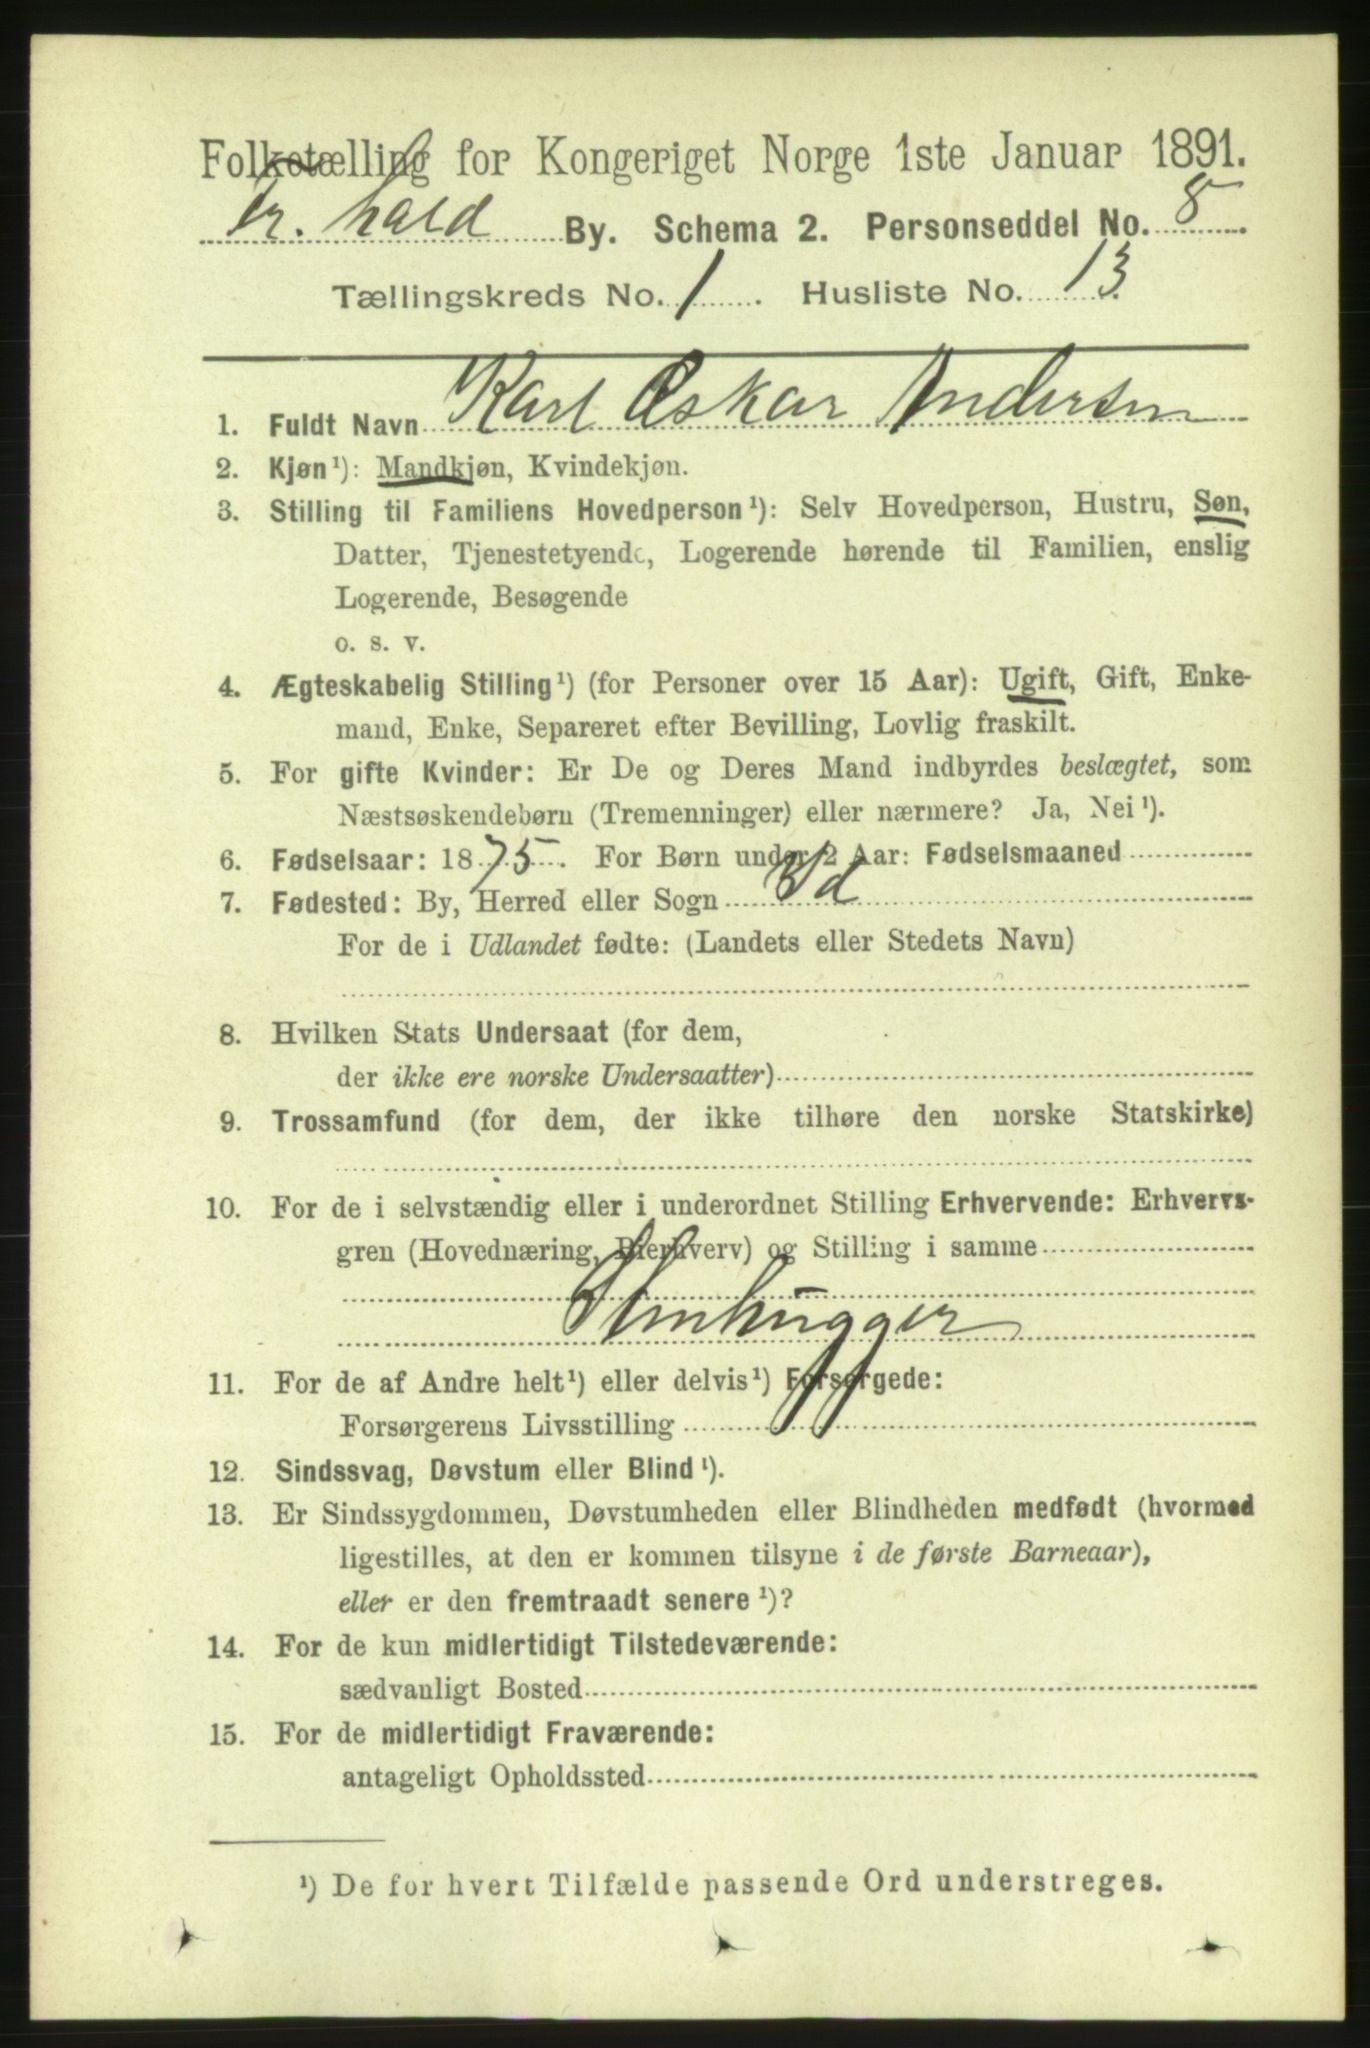 Folketælling for Kongeriget Norge 1ste Januar 1891.
Fr.hald By. Schema 2. Personseddel No. 8
Tællingskreds No. 1. Husliste No. 13
1. Fuldt Navn Karl Oskar Andersen
2. Kjøn¹): Mandkjøn, Kvindekjøn.
3. Stilling til Familiens Hovedperson¹): Selv Hovedperson, Hustru, Søn,
Datter, Tjenestetyende, Logerende hørende til Familien, enslig
Logerende, Besøgende
o. s. v.
4. Ægteskabelig Stilling¹) (for Personer over 15 Aar): Ugift, Gift, Enke-
mand, Enke, Separeret efter Bevilling, Lovlig fraskilt.
5. For gifte Kvinder: Er De og Deres Mand indbyrdes beslægtet, som
Næstsøskendebørn (Tremenninger) eller nærmere? Ja, Nei¹).
6. Fødselsaar: 1875. For Børn under 2 Aar: Fødselsmaaned
7. Fødested: By, Herred eller Sogn Id
For de i Udlandet fødte: (Landets eller Stedets Navn)
8. Hvilken Stats Undersaat (for dem,
der ikke ere norske Undersaatter)
9. Trossamfund (for dem, der ikke tilhøre den norske Statskirke)
10. For de i selvstændig eller i underordnet Stilling Erhvervende: Erhvervs-
gren (Hovednæring, Bierhverv) og Stilling i samme
Stenhugger
11. For de af Andre helt¹) eller delvis¹) Forsørgede:
Forsørgerens Livsstilling
12. Sindssvag, Døvstum eller Blind¹).
13. Er Sindssygdommen, Døvstumheden eller Blindheden medfødt (hvormed
ligestilles, at den er kommen tilsyne i de første Barneaar),
eller er den fremtraadt senere¹)?
14. For de kun midlertidigt Tilstedeværende:
sædvanligt Bosted
15. For de midlertidigt Fraværende:
antageligt Opholdssted
¹) De for hvert Tilfælde passende Ord understreges.